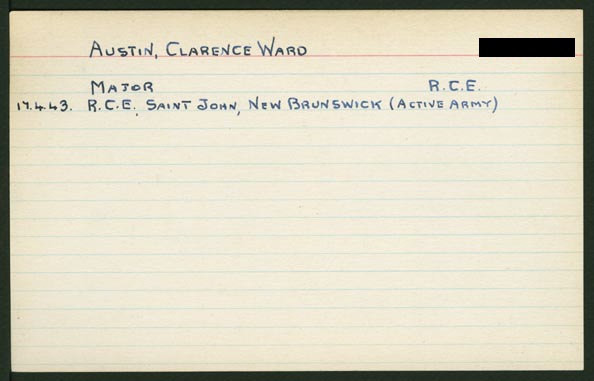 AUSTIN, CLARENCE WARD
MAJOR R.C.E.
17.4.43. R.C.E., SAINT JOHN, NEW BRUNSWICK (ACTIVE ARMY)